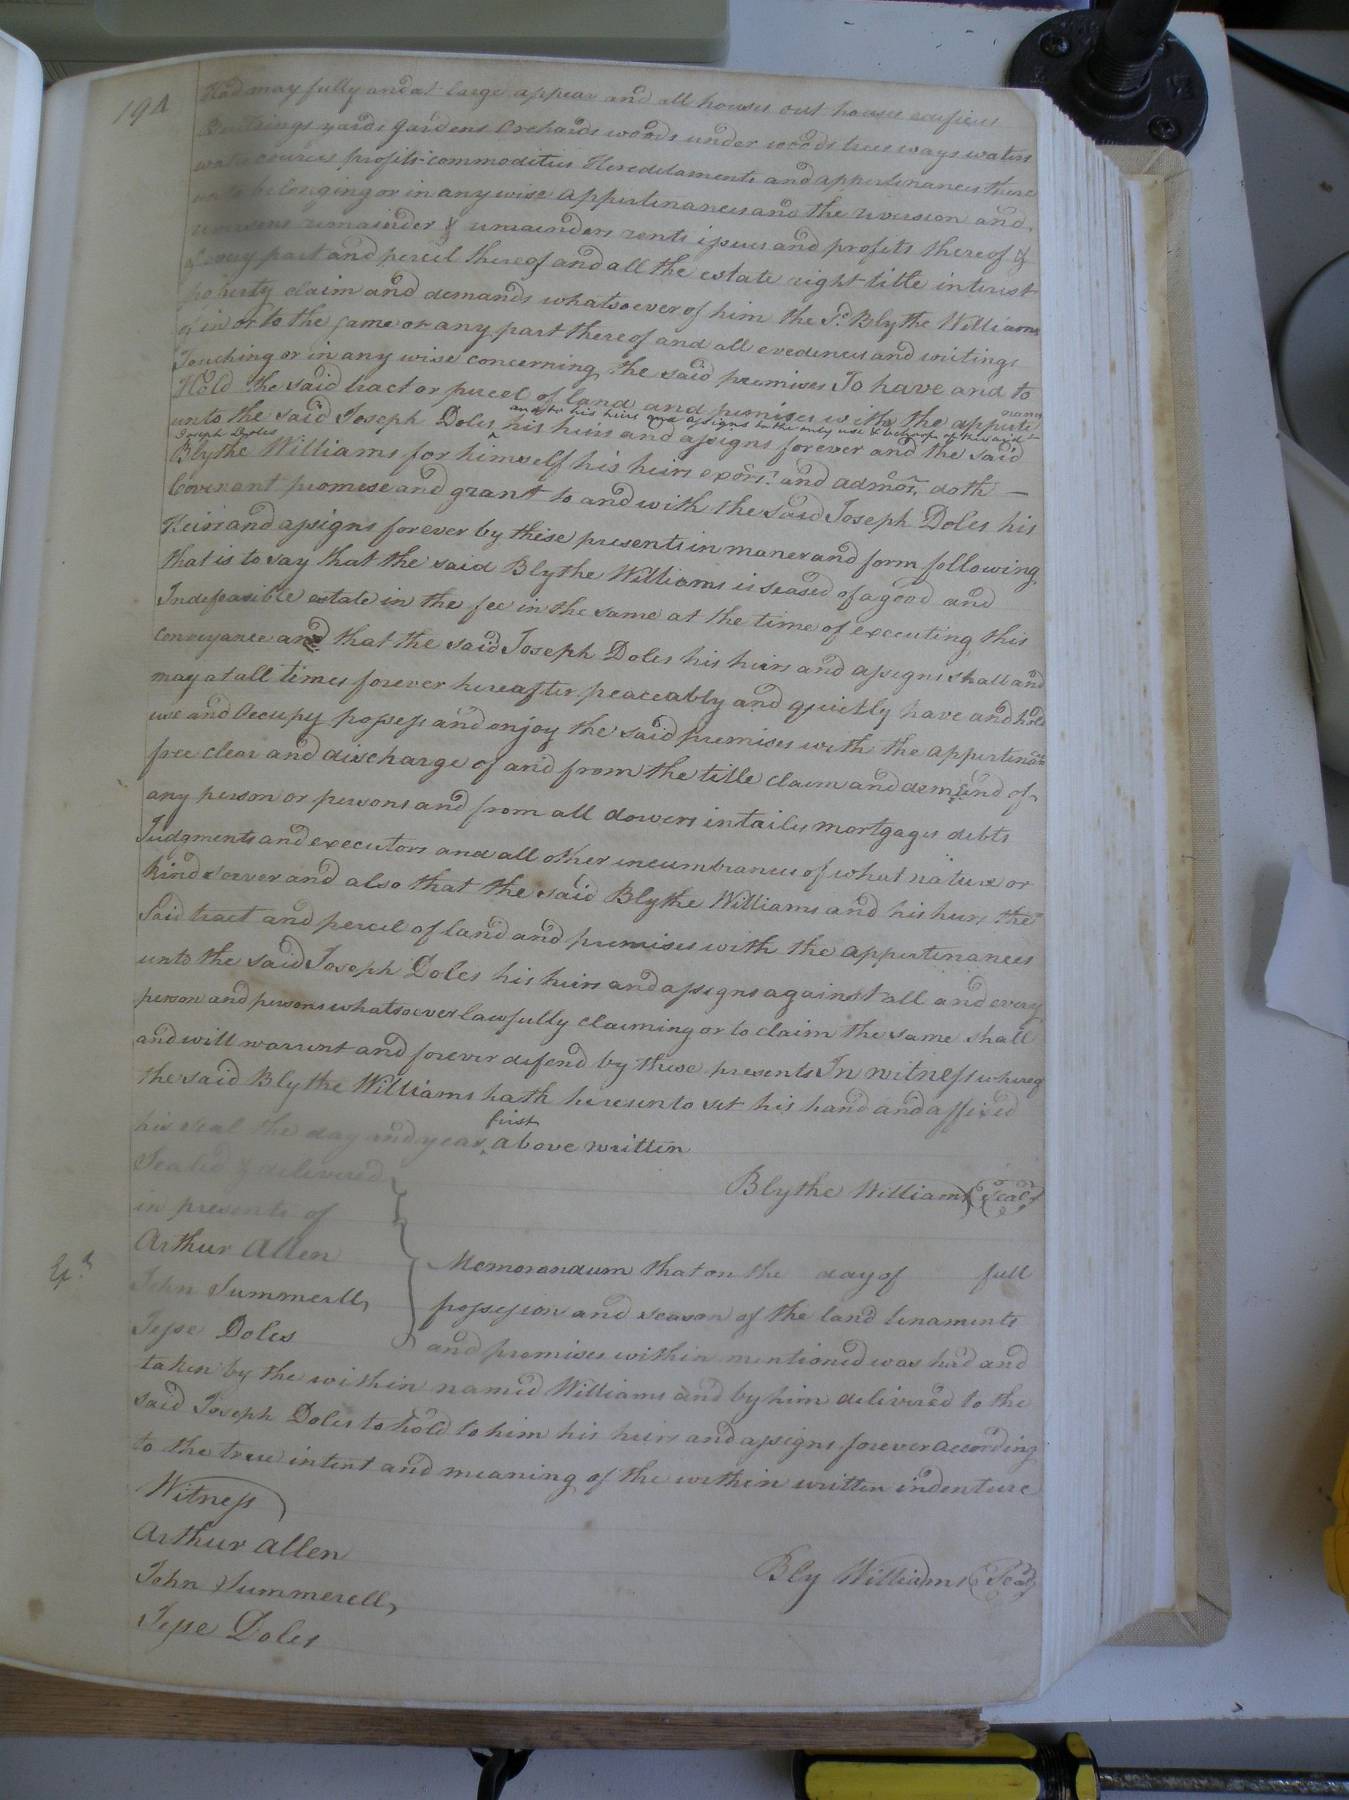 194
Had may fully and at large appear and all houses out houses edifices
Buildings yards gardens Orchards woods under woods trees ways waters
water courses profits commodities Hereditaments and appertinances there
unto belonging or in any wise appertinances and the reversion and
reversions remainder & remainders rents issues and profits thereof &
of every part and percel thereof and all the estate right title interest
property claim and demands whatsoever of him the Sd. Blythe Williams
of in or to the same or any part thereof and all evedences and writings
Touching or in any wise concerning the said premises To have and to
Hold the said tract or purcel of land and premises with the apperte
nances
unto the said Joseph Doles his heirs and assigns forever and the said
and to his heirs and assigns to the only use & behoof of the said
Joseph Doles
Blythe Williams for himself his heirs exors. and admors. doth —
Covenant promese and grant to and with the said Joseph Doles his
Heirs and assigns forever by these presents in maner and form following
that is to say that the said Blythe Williams is seased of a good and
Indefeasible estate in the fee in the same at the time of executing this
conveyance and that the said Joseph Doles his heirs and assigns shall and
may at all times forever hereafter peaceably and quietly have and hold
use and Occupy possess and enjoy the said premises with the appertinances
free clear and discharge of and from the title claim and demand of
any person or persons and from all dowers intailes mortgages debts
Judgments and executors and all other incumbrances of what nature or
kind soever and also that the said Blythe Williams and his heirs the
Said tract and percel of land and premises with the appertinances
unto the said Joseph Doles his heirs and assigns against all and every
person and persons whatsoever lawfully claiming or to claim the same shall
and will warrent and forever defend by these presents In witness whereof
the said Blythe Williams hath hereunto set his hand and affixed
his seal the day and year first above written
Sealed & delivered
Blythe Williams (Seal)
in presents of
Arthur Allen
Memorandum that on the day of full
Exd.
John Summerell,
possession and season of the land tenaments
Jesse Doles
and premises within mentioned was had and
taken by the within named Williams and by him delivered to the
said Joseph Doles to hold to him his heirs and assigns forever according
to the true intent and meaning of the within written indenture
Witness
Arthur Allen
Bly Williams (Seal)
John Summerell,
Jesse Doles